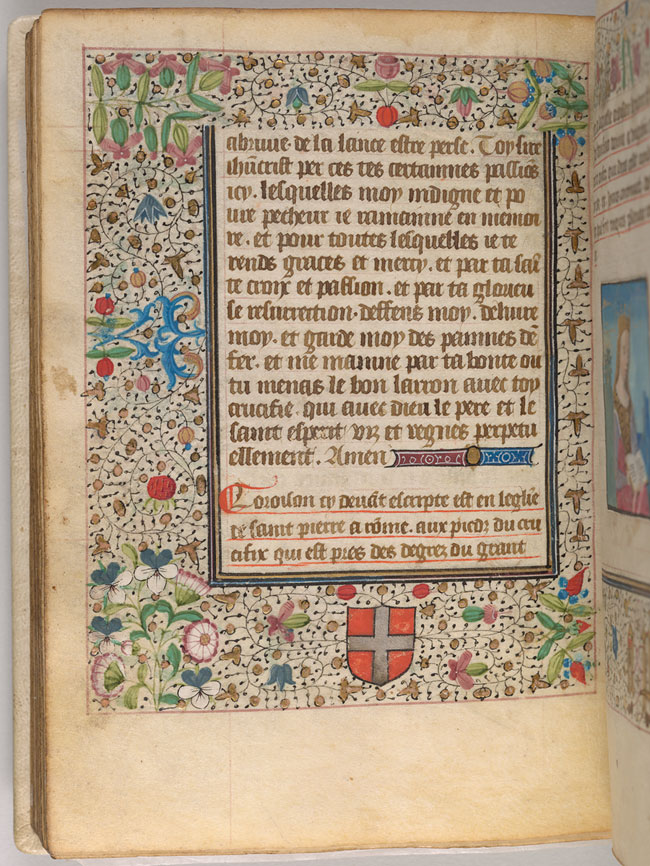 abruue. de la lance estre perse. Toy sire
ihūcrist per ces tes certainnes passiōs
icy. lesquelles moy indigne et po
ure pecheur ie ramainne en memoi
re. et pour toutes lesquelles ie te
rends graces et mercy. et par ta sai
te croix et passion. et par ta glorieu
se resurrection. deffens moy. deliure
moy. et garde moy des painnes dē
fer. et me mainne par ta bonte ou
tu menas le bon larron auec toy
crucifie. qui auec dieu le pere et le
saint esperit viz et regnes perpetu
ellement. Amen
Loroison cy deuāt escripte est en leglise
de saint pierre a rōme. aux piedz du cru
cifix qui est pres des degrez du grant